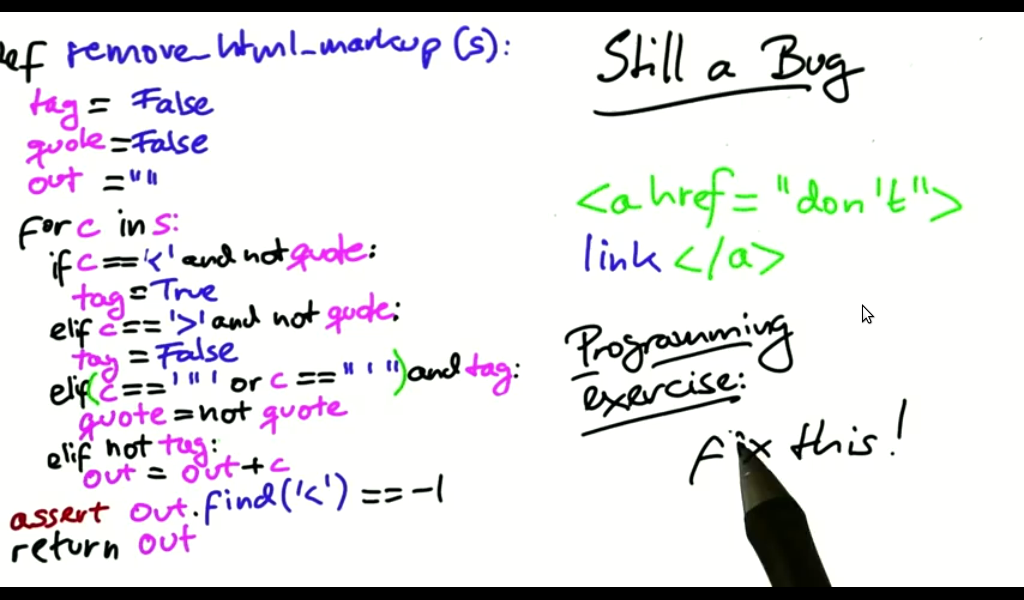 def remove_html_markup (s):
tag = False
quote = False
out = ""
for c in s:
if c == '<' and not quote:
tag = True
elif c == '>' and not quote:
tag = False
elif (c == '"' or c == "'") and tag:
quote = not quote
elif not tag:
out = out + c
assert out.find('<') == -1
return out
Still a Bug
<a href = "don't">
link </a>
Programming
exercise:
fix this!